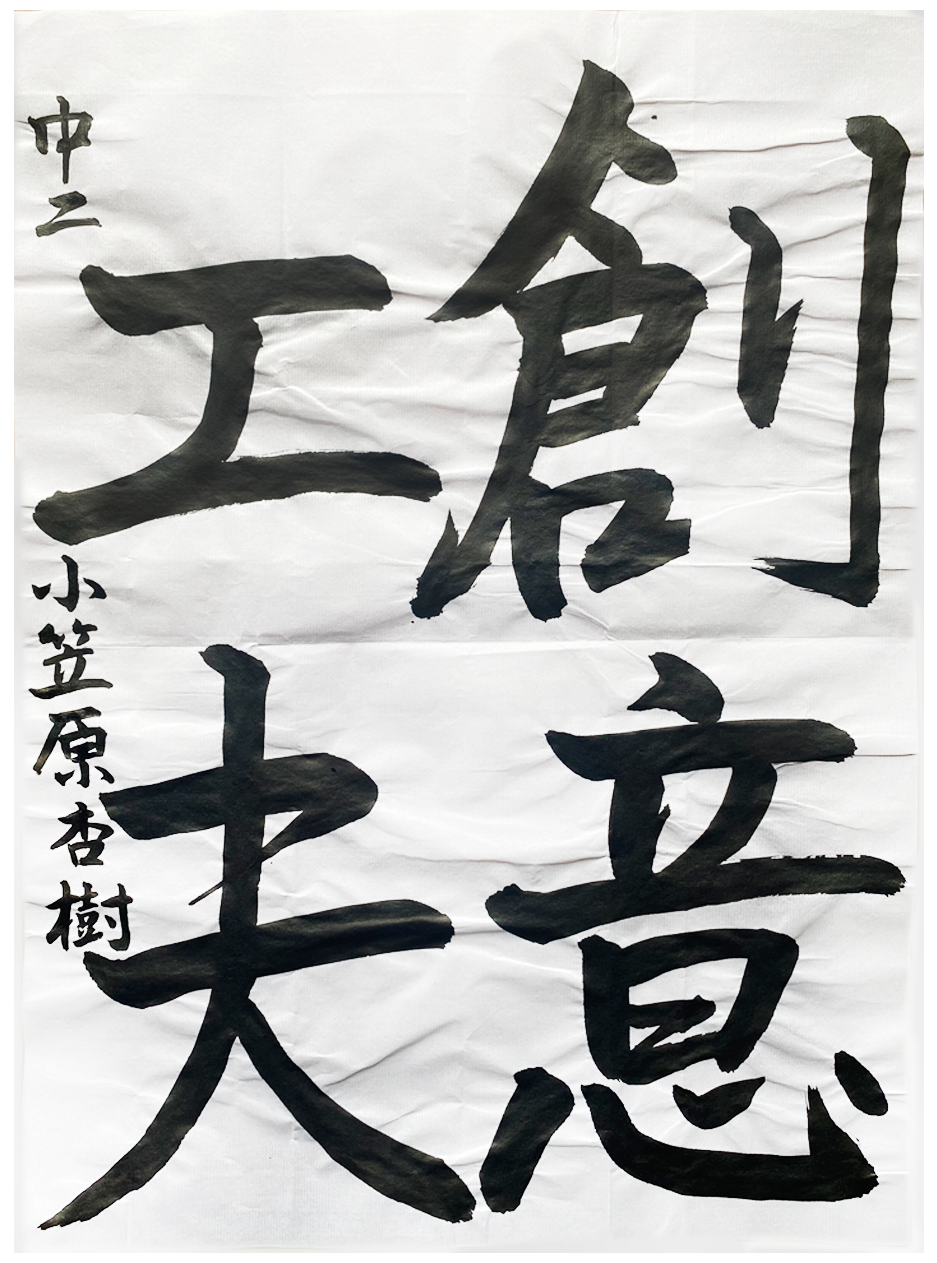 創意
工夫
中二
小笠原杏樹